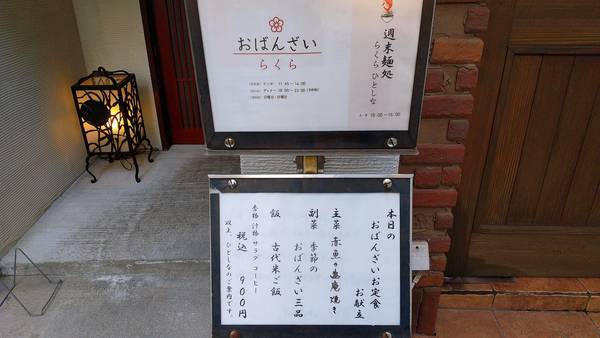 おばんざい
らくら
ランチ 11:45〜14:00
ディナー 18:00〜22:00
週末麺処
らくら ひとしな
本日の
おばんざいお定食
お献立
主菜 赤魚の幽庵焼き
副菜 季節の
おばんざい三品
飯 古代米ご飯
香物 汁物 サラダ コーヒー
税込 900円
以上、ひとしなのご案内です。